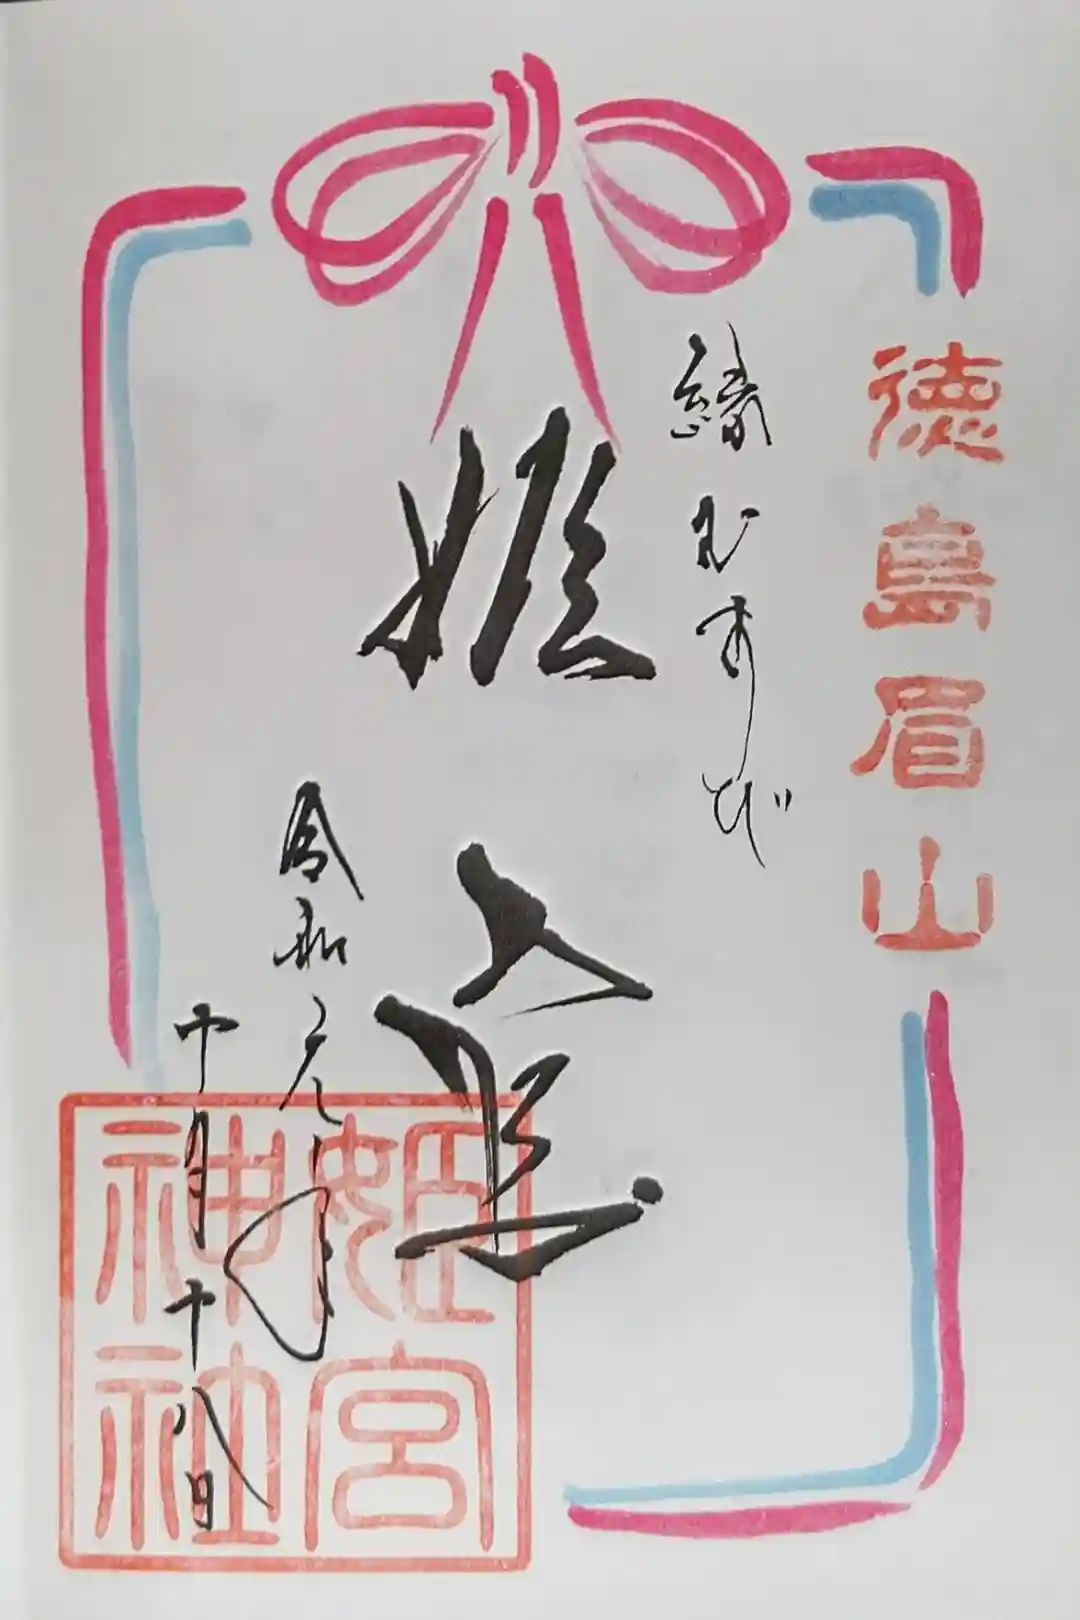 徳島眉山
縁むすび
姫宮
令和元年
十月十八日
姫宮
神社